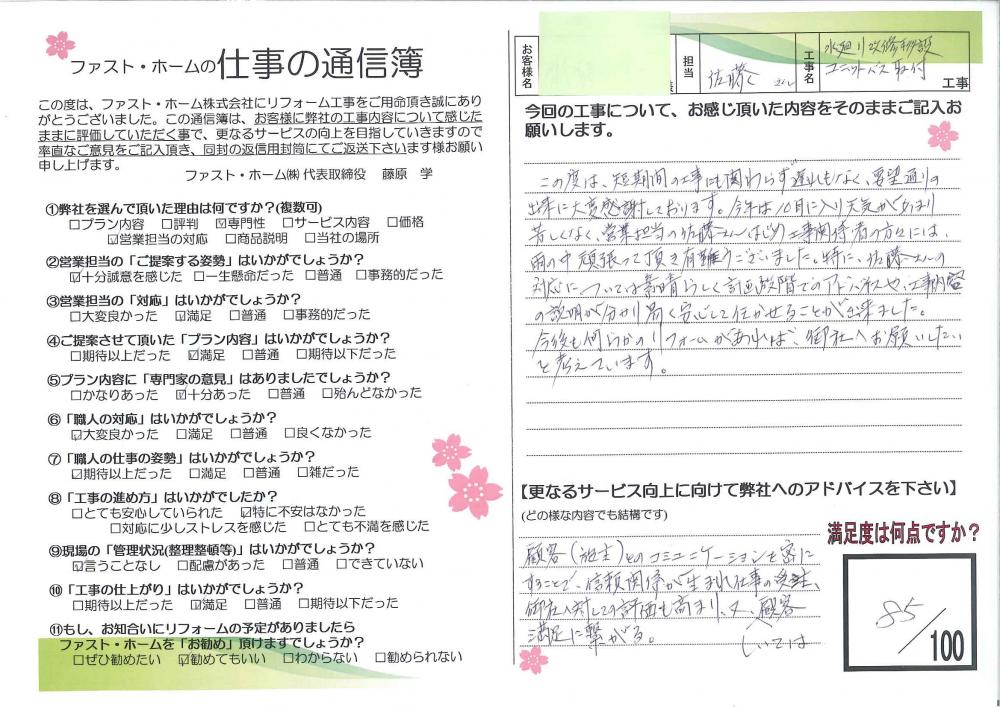 ファスト・ホームの仕事の通信簿
この度は、ファスト・ホーム株式会社にリフォーム工事をご用命頂き誠にあり
がとうございました。この通信簿は、お客様に弊社の工事内容について感じた
ままに評価していただく事で、更なるサービスの向上を目指していきますので
率直なご意見をご記入頂き、同封の返信用封筒にてご返送下さいます様お願い
申し上げます。
ファスト・ホーム㈱ 代表取締役 藤原 学
①弊社を選んで頂いた理由は何ですか?(複数可)
□プラン内容 □評判 ☑専門性 □サービス内容 □価格
☑営業担当の対応 □商品説明 □当社の場所
②営業担当の「ご提案する姿勢」はいかがでしょうか?
☑十分誠意を感じた □一生懸命だった □普通 □事務的だった
③営業担当の「対応」はいかがでしょうか?
□大変良かった ☑満足 □普通 □事務的だった
④ご提案させて頂いた「プラン内容」はいかがでしょうか?
□期待以上だった ☑満足 □普通 □期待以下だった
⑤プラン内容に「専門家の意見」はありましたでしょうか?
□かなりあった ☑十分あった □普通 □殆んどなかった
⑥「職人の対応」はいかがでしょうか?
☑大変良かった □満足 □普通 □良くなかった
⑦「職人の仕事の姿勢」はいかがでしょうか?
☑期待以上だった □満足 □普通 □雑だった
⑧「工事の進め方」はいかがでしたか?
□とても安心していられた ☑特に不安はなかった
□対応に少しストレスを感じた □とても不満を感じた
⑨現場の「管理状況(整理整頓等)」はいかがでしょうか?
☑言うことなし □配慮があった □普通 □できていない
⑩「工事の仕上がり」はいかがでしょうか?
□期待以上だった ☑満足 □普通 □期待以下だった
⑪もし、お知合いにリフォームの予定がありましたら
ファスト・ホームを「お勧め」頂けますでしょうか?
□ぜひ勧めたい ☑勧めてもいい □わからない □勧められない
お客様名
担当 佐藤
工事名 水廻り改修移設
ユニットバス取付 工事
今回の工事について、お感じ頂いた内容をそのままご記入お
願いします。
この度は、短期間の工事にも関わらず遅れもなく、要望通りの
出来に大変感謝しております。今年は10月に入り天気があまり
芳しくなく、営業担当の佐藤さんはじめ工事関係者の方々には、
雨の中頑張って頂き有難うございました。特に、佐藤さんの
対応については素晴らしく計画段階でのアドバイスや、工事内容
の説明が分かり易く安心して任かせることが出来ました。
今後も何らかのリフォームがあれば、御社へお願いしたい
と考えています。
【更なるサービス向上に向けて弊社へのアドバイスを下さい】
(どの様な内容でも結構です)
顧客(施主)とのコミュニケーションを密に
することで、信頼関係が生まれ仕事の受注、
御社へ対しての評価も高まり、又、顧客
満足に繋がる。
しいては
満足度は何点ですか?
85/100